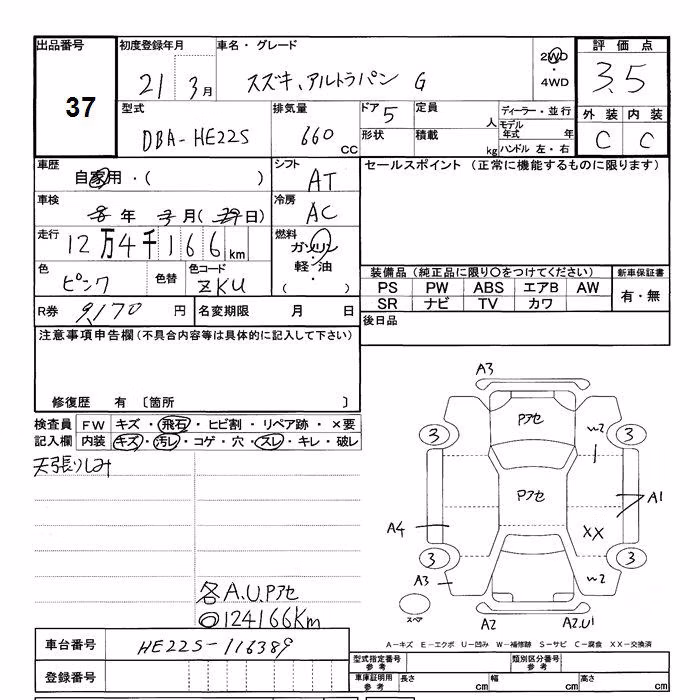 出品番号 初度登録年月 車名・グレード 評価点
37 21 3月 スズキ、アルトラパン G 2WD・4WD 3.5
型式 排気量 ドア 5 定員 人 ディーラー・並行 外装 内装
DBA-HE22S 660 CC 形状 積載 kg モデル年式 年 C C
ハンドル 左・右
車歴 シフト セールスポイント (正常に機能するものに限ります)
自家用・( ) AT
車検 冷房
年 月( 日) AC
走行 12万4千166km 燃料 ガソリン・軽油 ( )
色 ピンク 色替 色コード ZKU
装備品 (純正品に限り○をつけてください) 新車保証書
PS PW ABS エアB AW 有・無
SR ナビ TV カワ
R券 9,170 円 名変期限 月 日 後日品
注意事項申告欄(不具合内容等は具体的に記入して下さい)
修復歴 有 〔箇所 〕
検査員 FW キズ・飛石・ヒビ割・リペア跡・×要
記入欄 内装 キズ・汚レ・コゲ・穴・スレ・キレ・破レ
天張りしみ
各A.U.Pアセ
◎124166Km
A3
Pアセ
3 3
Pアセ
A1
A4 XX
3 3
A3
スペア A2 A2.U1
A-キズ E-エクボ U-凹み W-補修跡 S-サビ C-腐食 XX-交換済
車台番号 HE22S-116389
型式指定番号 参考 類別区分番号 参考
登録番号 車庫証明用 参考 長さ cm 幅 cm 高さ cm